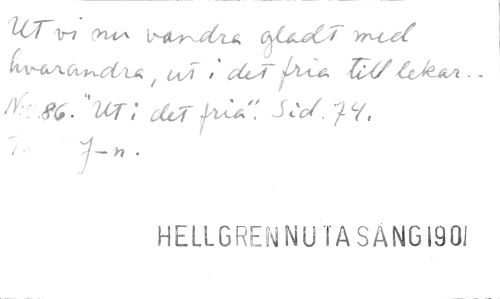 Ut vi nu vandra gladt med
hvarandra, ut i det fria till lekar..
No. 86. "Ut i det fria". Sid. 74.
J-n.
HELLGRENNUTASÅNG1901